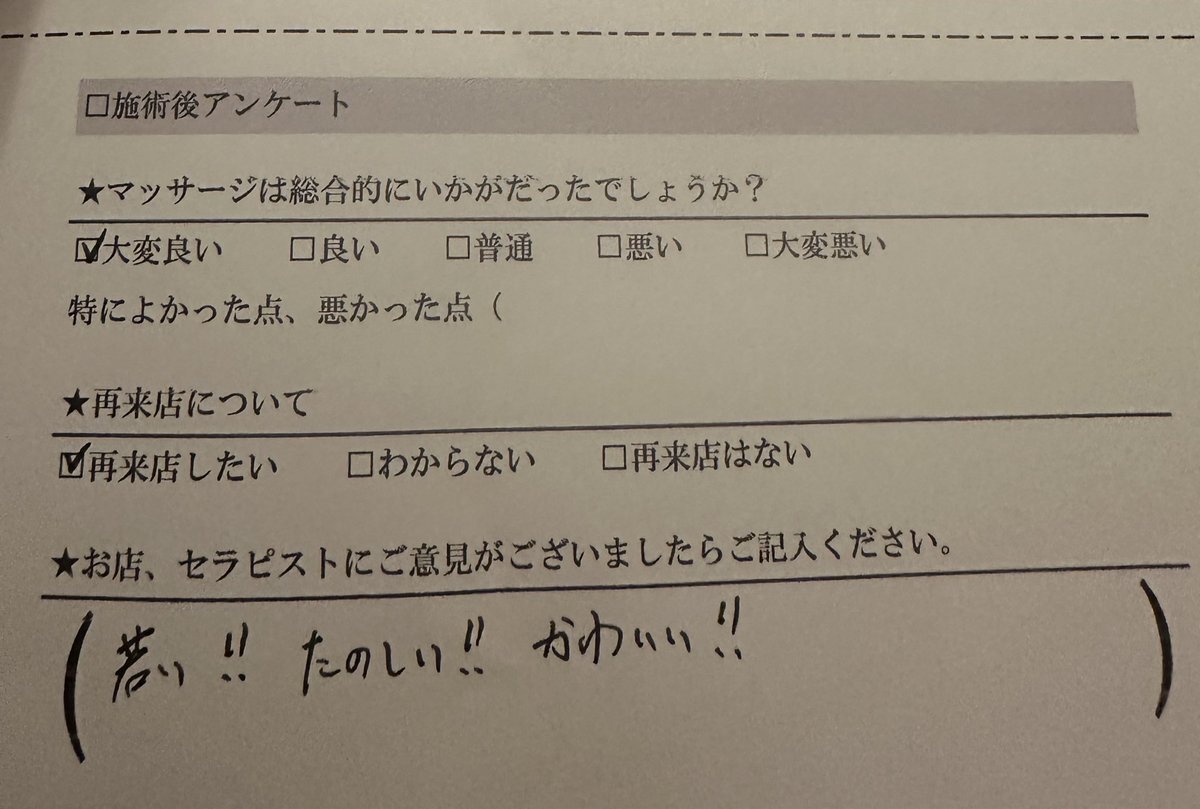 □施術後アンケート
★マッサージは総合的にいかがだったでしょうか？
☑大変良い □良い □普通 □悪い □大変悪い
特によかった点、悪かった点（
★再来店について
☑再来店したい □わからない □再来店はない
★お店、セラピストにご意見がございましたらご記入ください。
（若い!! たのしい!! かわいい!!）